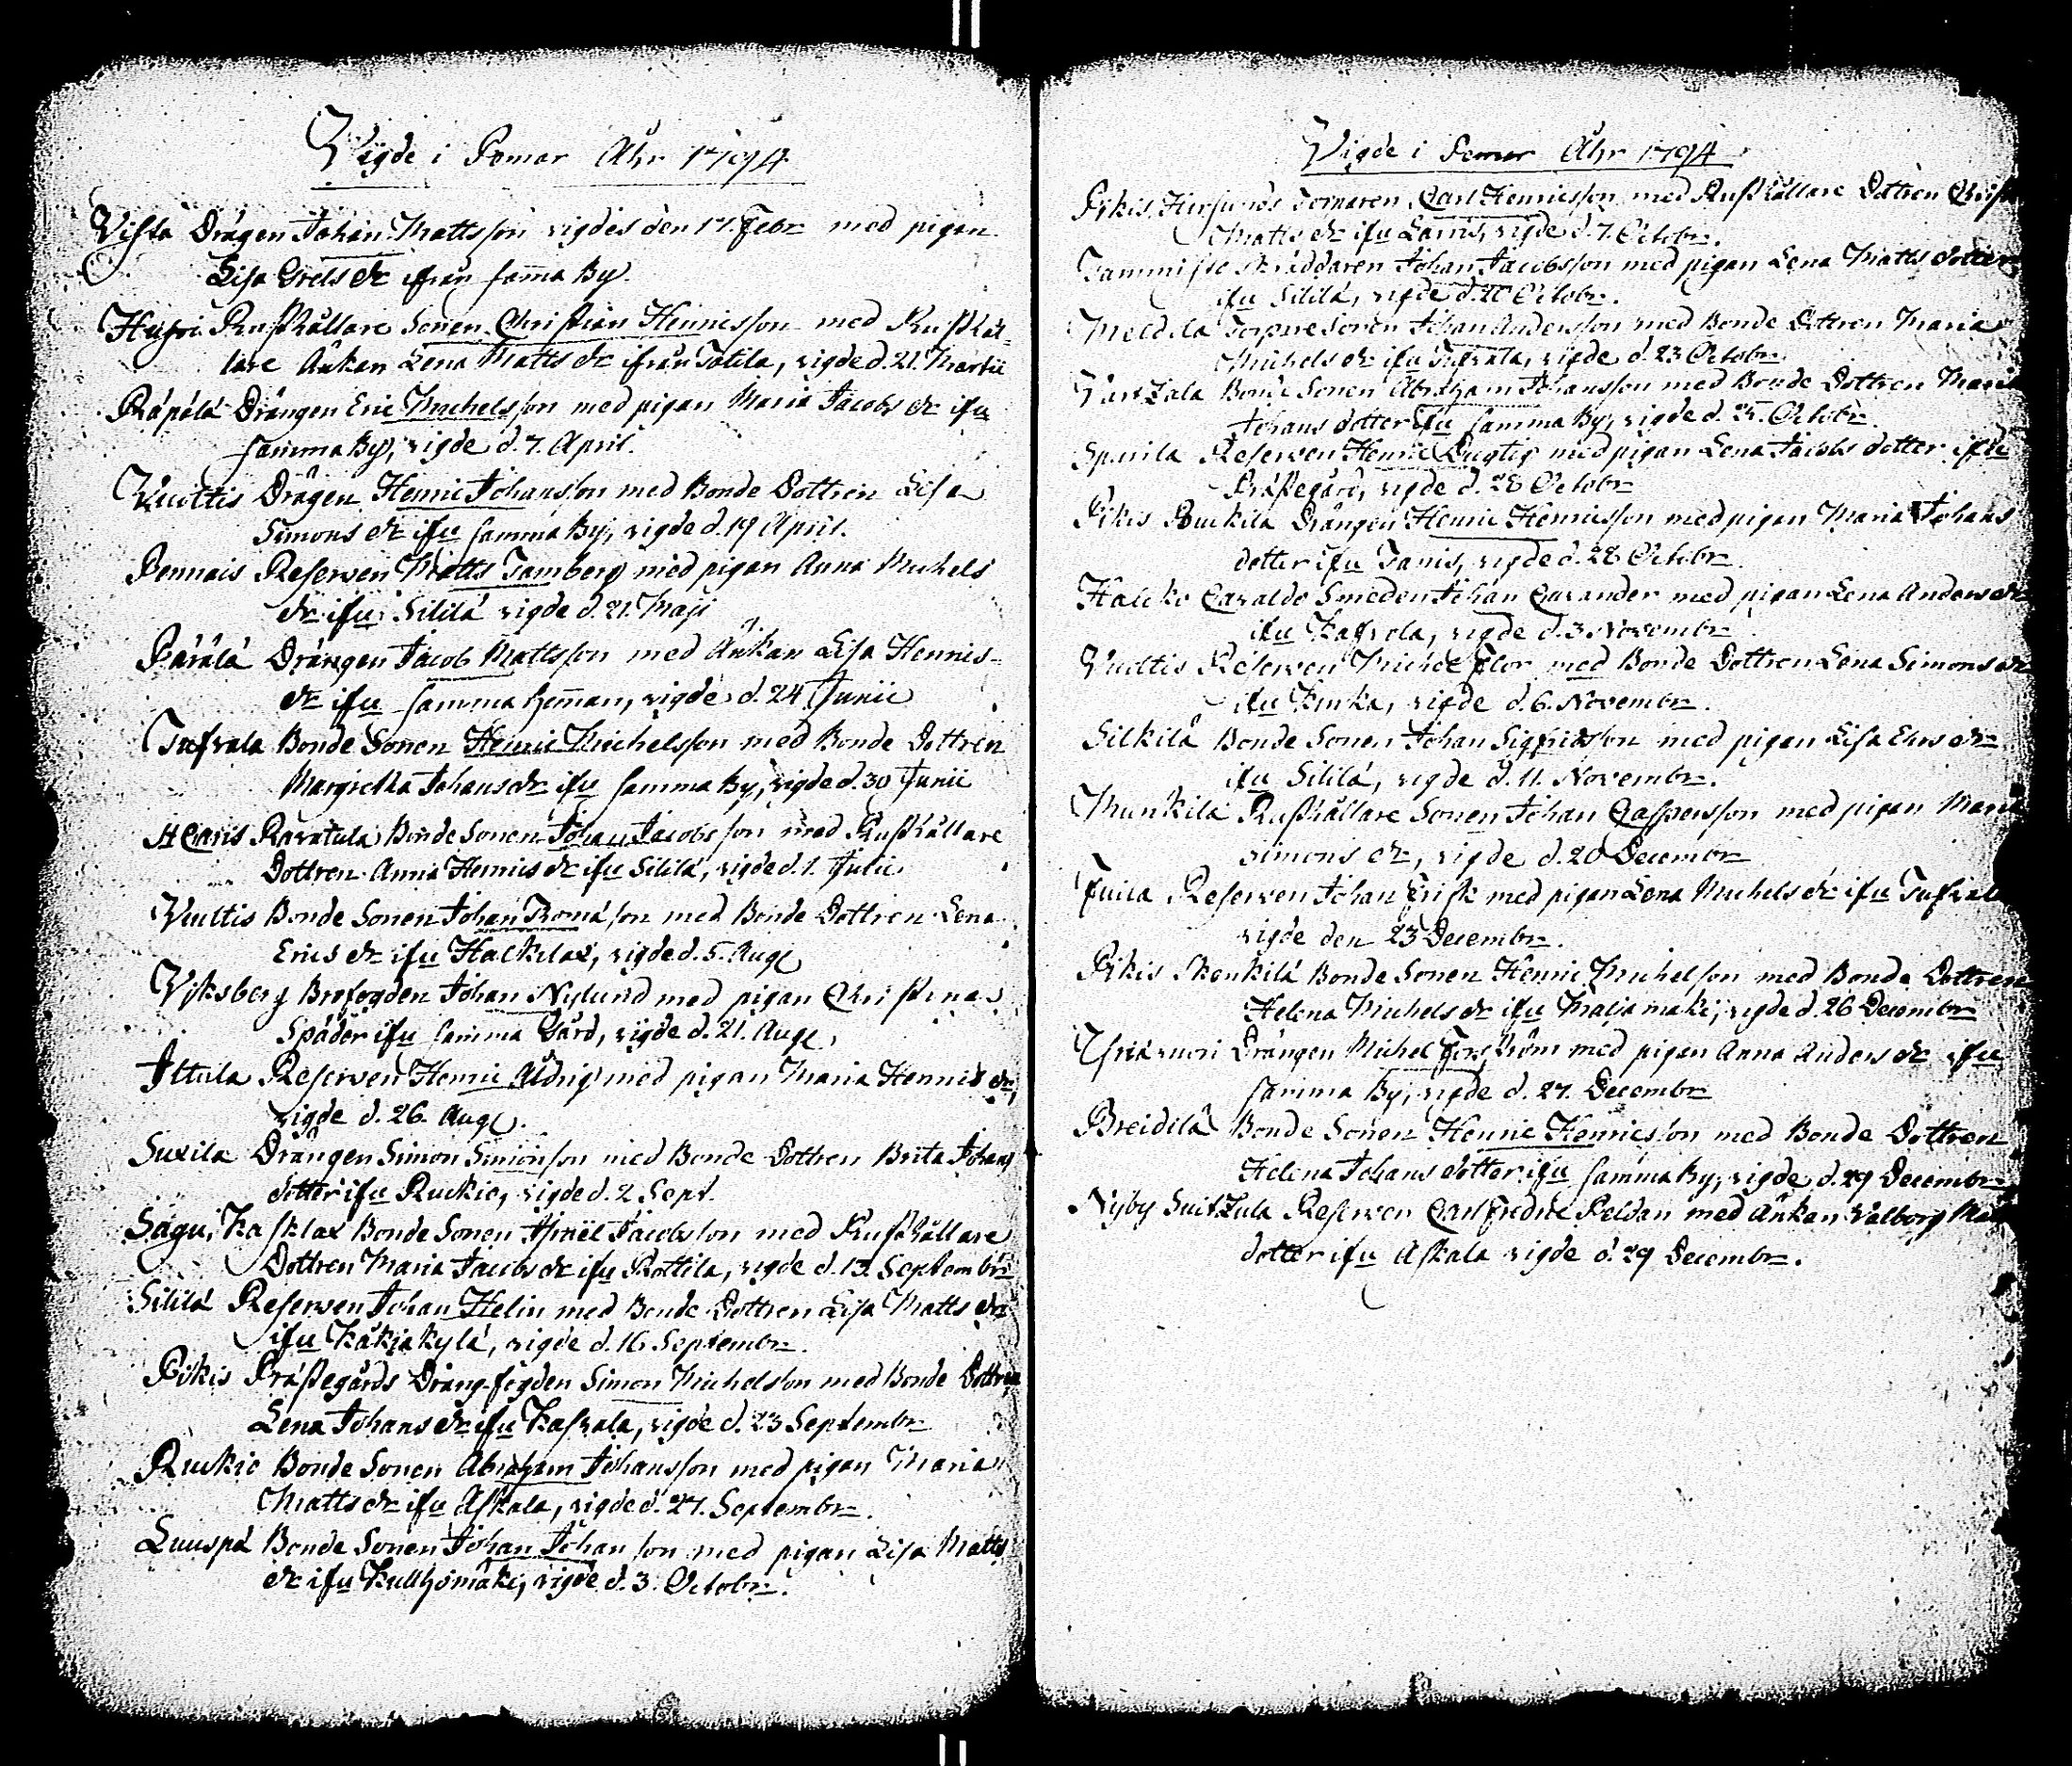 Vigde i Pemar Åhr 1794
Vista Drågen Johan Mattsson vigdes den 17. Febr med pigan
Lisa Grels dr ifrån samma By.
Rusthållare Sonen Christian Henricsson med Rusthål-
lare Änkan Lena Matts dr ifrån Totila, vigde d. 21. Martii
Räpälä Drängen Eric Michelsson med pigan Maria Jacobs dr ifrn
samma By, vigde d. 7. April.
Wuottis Drågen Henric Johansson med Bonde Dottren Lisa
Simons dr ifrn samma By, vigde d. 19 April.
Pennais Reserven Matts Tamberg med pigan Anna Michels
dr ifrn Sililä vigde d. 21. Maji
Pärälä Drängen Jacob Mattsson med Änkan Lisa Henrics-
dr ifrn samma heman, vigde d. 24 Junii
Tufvala Bonde Sonen Henric Michelsson med Bonde Dottren
Margretha Johans dr ifrn samma By, vigde d. 30 Junii
St Caris Ravatula Bonde Sonen Johan Jacobsson med Rusthållare
Dottren Anna Henrics dr ifrn Sililä, vigde d. 1. Julii
Vuultis Bonde Sonen Johan Thomasson med Bonde Dottren Lena
Erics dr ifrn Halkilax, vigde d. 5. Aug
Viksberg Brofogden Johan Nylund med pigan Christina
Späder ifrn samma Gård, vigde d. 21. Aug.
Ittula Reserven Henric Aldrig med pigan Maria Henrics dr,
vigde d. 26. Aug.
Suxila Drängen Simon Simonsson med Bonde Dottren Brita Johans
dotter ifrn Ruckie, vigde d. 2 Sept.
Sagu, Kasklax Bonde Sonen Israel Jacobsson med Rusthållare
Dottren Maria Jacobs dr ifrn Rottila, vigde d. 13. Septembr
Sililä Reserven Johan Helin med Bonde Dottren Lisa Matts dr
ifrn Käkjäkylä, vigde d. 16. Septembr.
Pikis Prästegårds Dräng-fogden Simon Michelsson med Bonde Dottren
Lena Johans dr ifrn Kasvala, vigde d. 23 Septembr
Ruckie Bonde Sonen Abraham Johansson med pigan Maria
Matts dr ifrn Askala, vigde d. 27. Septembr.
Luuspä Bonde Sonen Johan Johansson med pigan Lisa Matts
dr ifrn Kullhomäki, vigde d. 3. Octobr.
Vigde i Pemar Åhr 1794
Pikis, Carl Henricsson med Rusthållare Dottren
Matts dr ifrn vigde d. 7. Octobr.
Tammisto Skräddaren Johan Jacobsson med pigan Lena Matts dotter
ifrn Sililä, vigde d. Octobr.
Meldola Torpare Sonen Johan Andersson med Bonde Dottren Maria
Michels dr ifrn Tufvala, vigde d. 23 Octobr
Bonde Sonen Abraham Johansson med Bonde Dottren Maria
Johans dotter ifrn samma By, vigde d. 25. Octobr.
Spurila Reserven Henric Dugtig med pigan Lena Jacobs dotter ifrn
Prästegård, vigde d. 28 Octobr
Pikis Drängen Henric Henricsson med pigan Maria Johans
dotter ifrn Tanis, vigde d. 28 Octobr
Haliko Smeden Johan Cavander med pigan Lena Anders dr
ifrn vigde d. 3 Novembr
Vuoltis Reserven Michel Flor med Bonde Dottren Lena Simons dr
ifrn vigde d. 6. Novembr.
Silkilä Bonde Sonen Johan Sigfridsson med pigan Lisa Ehrs dr
ifrn Sililä, vigde d. 11. Novembr.
Munkila Rusthållare Sonen Johan Caspersson med pigan Maria
Simons dr, vigde d. 20 Decembr
Fuila Reserven Johan Frisk med pigan Lena Michels dr ifrn Tufvala
vigde den 23 Decembr.
Pikis Bonde Sonen Henric Michelsson med Bonde Dottren
Helena Michels dr ifrn Maljamäki, vigde d. 26 Decembr
Drängen Michel Forsström med pigan Anna Anders dr ifrn
samma By, vigde d. 27. Decembr
Breidilä Bonde Sonen Henric Henricsson med Bonde Dottren
Helena Johans dotter ifrn samma By, vigde d. 29 Decembr
Nyby Reserven Carl Fredric Peldan med Änkan Valborg
dotter ifrn Askala vigde d. 29 Decembr.